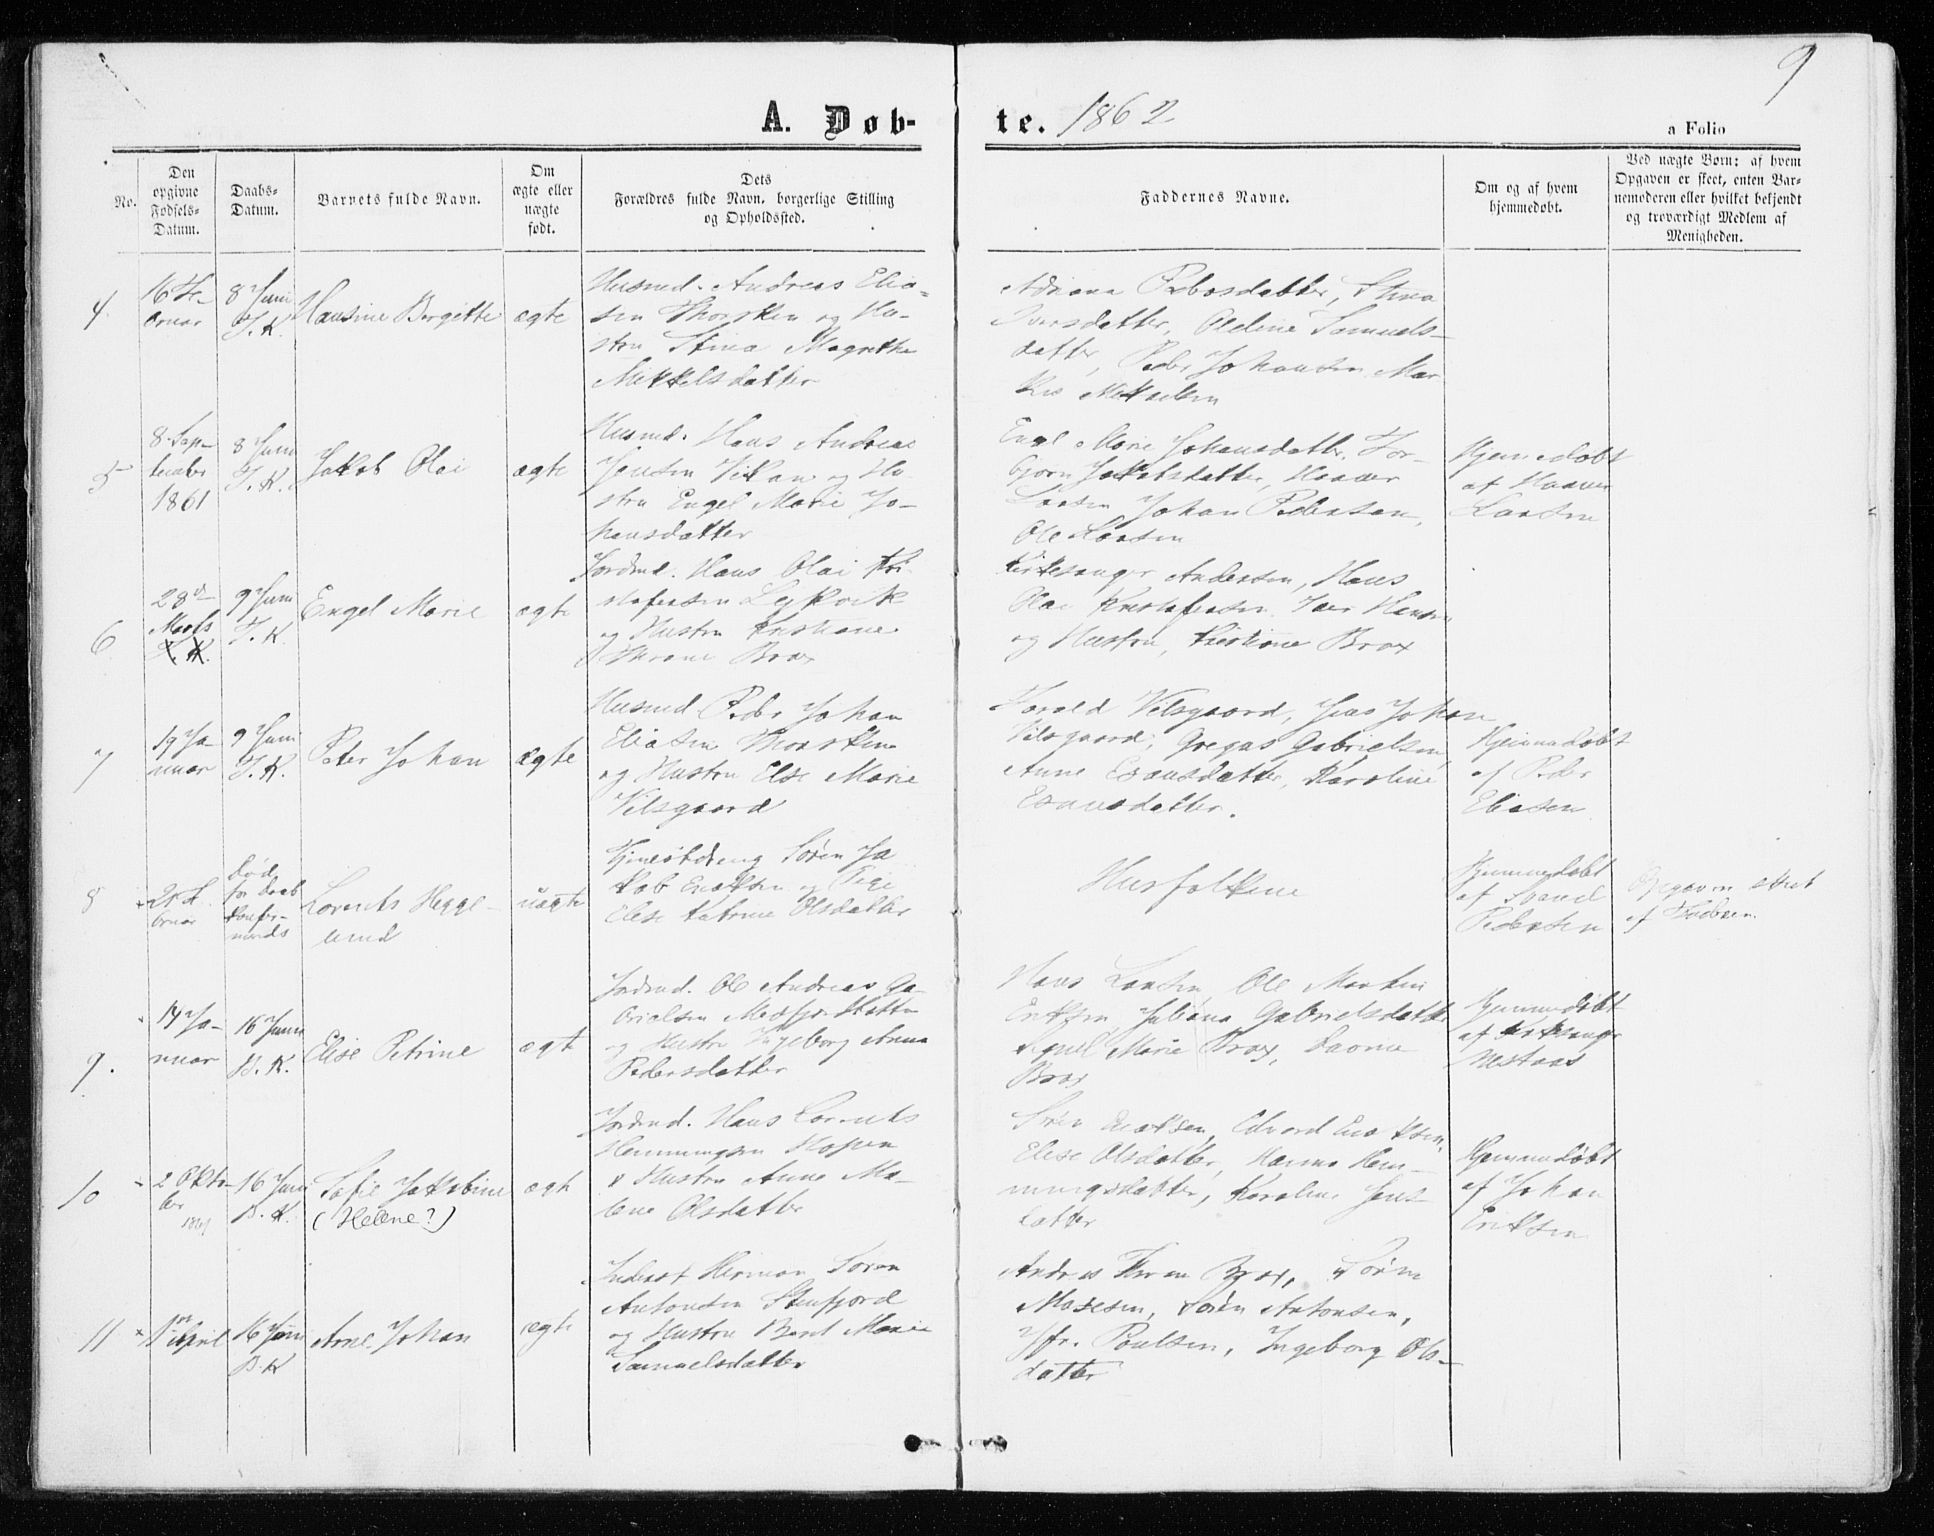 9
A. Døb-te. 1862
a Folio
No.
Den
opgivne
Fødsels-
Datum.
Daabs-
Datum.
Barnets fulde Navn.
Om
ægte eller
uægte
født.
Dets
Forældres fulde Navn, borgerlige Stilling
og Opholdssted.
Faddernes Navne.
Om og af hvem
hjemmedøbt.
Ved uægte Børn: af hvem
Opgaven er skeet, enten Bar-
nemoderen eller hvilket bekjendt
og troværdigt Medlem af
Menigheden.
4
16 Fe-
bruar
8 Juni
T. K.
Hansine Bergitte
ægte
Husmd. Andreas Elia-
sen Thorsken og Hu-
stru Stina Magrethe
Mikkelsdatter
Adriana Pedersdatter, Stina
Iversdatter, Oldine Samuels-
datter, Peder Johansen Mar
kus Mikkelsen
5
8 Sep-
tember
1861
8 Juni
T. K.
Jakob Olai
ægte
Husmd. Hans Andreas
Jensen Vikan og Hu
stru Engel Marie Jo-
hansdatter
Engel Marie Johansdatter, Tor-
bjørn Jakobsdatter, Haaver
Larsen Johan Pedersen,
Ole Larsen
Hjemmedøbt
af Haaver
Larsen
6
28de
Marts
T. K.
9 Juni
T. K.
Engel Marie
ægte
Jordmd. Hans Olai Kri-
stofersen Lekvik
og Hustru Kristiane
Thrane Brox
Kirkesanger Andersen, Hans
Olai Kristofersen, Iver Hansen
og Hustru, Kristiane Brox
7
19 Ja-
nuar
9 Juni
T. K.
Peter Johan
ægte
Husmd Peder Johan
Eliasen Thorsken
og Hustru Else Marie
Vilsgaard
Harald Vilsgaard, Jens Johan
Vilsgaard, Gregus Gabrielsen
Anne Esausdatter, Karoline
Esausdatter.
Hjemmedøbt
af Peder
Eliasen
8
Død
før Daab
konfir-
merets
Lorents Hegge-
lund
uægte
Søren Ja
kob Enoksen og Pige
Elise Katrine Olsdatter
Husfolkene
Hjemmedøbt
af
Pedersen
Opgaven skeet
af
9.
14 Ja-
nuar
16 Juni
B. K.
Elise Petrine
ægte
Jordmd. Ole Andreas Ga-
brielsen Medfjordbotten
og Hustru Ingeborg Anna
Pedersdatter
Hans Larsen, Ole Martin
Eriksen Juliana Gabrielsdatter
Marie Brox,
Brox
Hjemmedøbt
af Kirkesanger
Nestaas
10
2 Okto-
ber
1861
16 Juni
B. K.
Sofie Jakobine
(Helene?)
ægte
Jordmd. Hans Lorents
Henningsen Hopen
& Hustru Anne Ma-
lene Olsdatter
Søren Enoksen, Edvard Enoksen
Elise Olsdatter, Hanna Hen-
ningsdatter, Karoline Jens
datter
Hjemmedøbt
af Johan
Eriksen
11
1ste April
16 Juni
B. K
Arne Johan
ægte
Inderst Herman Søren
Antonsen Stenfjord
og Hustru Berit Marie
Samuelsdatter
Andreas Thrane Brox, Søren
Mosesen, Søren Antonsen,
Jfr. Poulsen, Ingeborg Ols-
datter